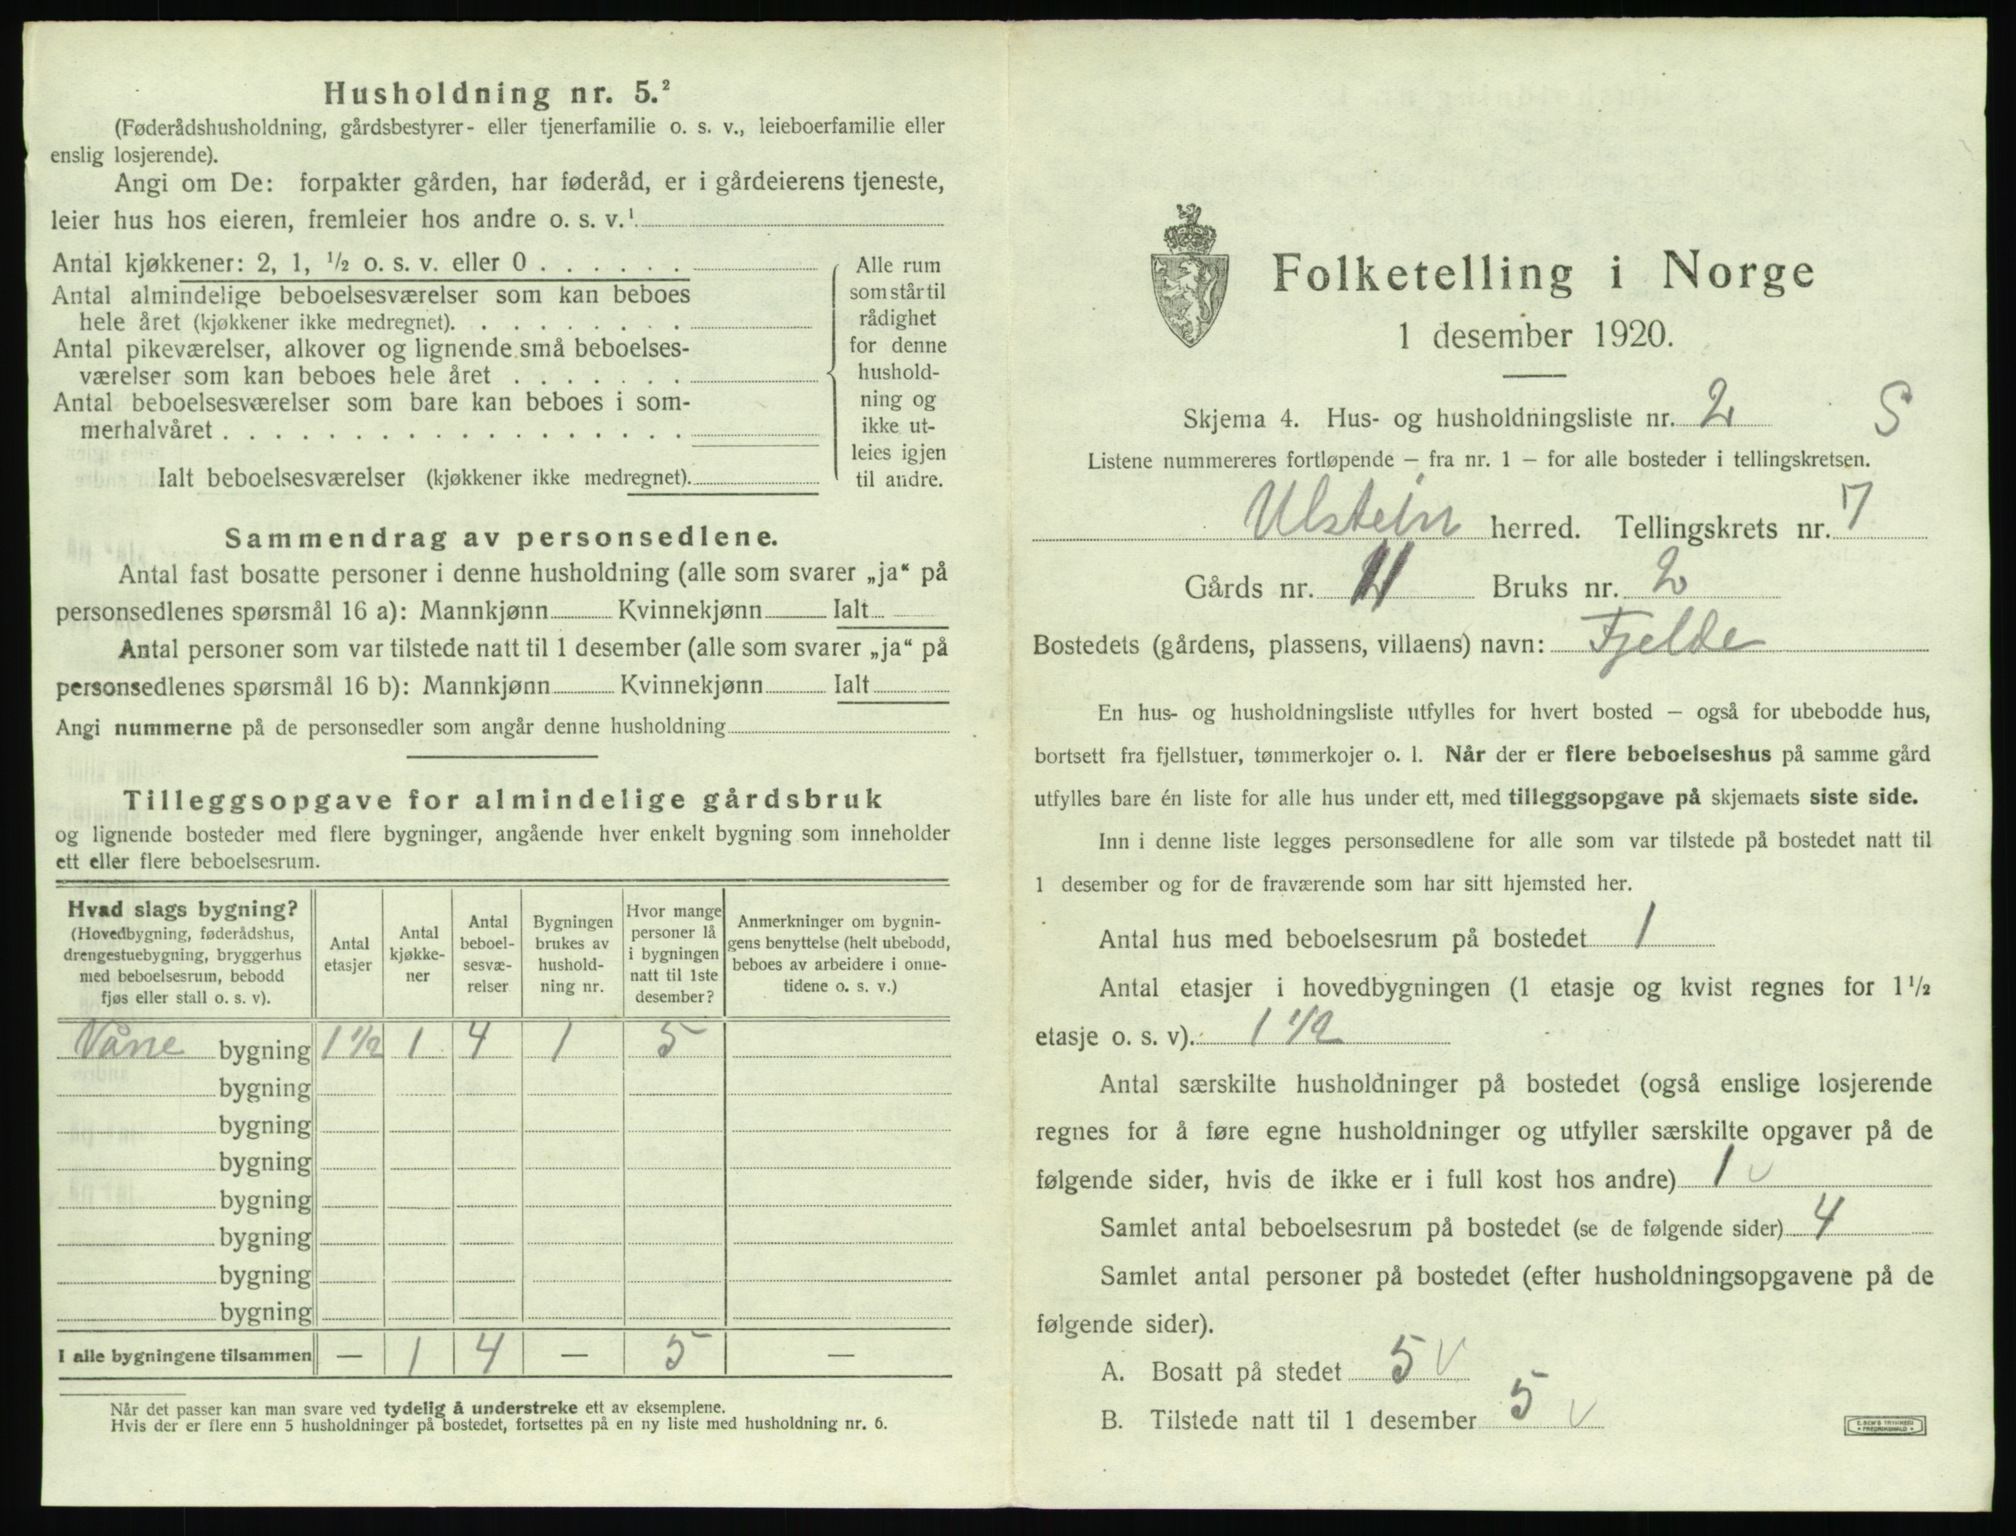 Husholdning nr. 5.²
(Føderådshusholdning, gårdsbestyrer- eller tjenerfamilie o. s. v., leieboerfamilie eller
enslig losjerende).
Angi om De: forpakter gården, har føderåd, er i gårdeierens tjeneste,
leier hus hos eieren, fremleier hos andre o. s. v.¹
Antal kjøkkener: 2, 1, ½ o. s. v. eller 0 . . . . . .
Antal almindelige beboelsesværelser som kan beboes
hele året (kjøkkener ikke medregnet). . . . . . . . .
Antal pikeværelser, alkover og lignende små beboelses-
værelser som kan beboes hele året . . . . . . .
Antal beboelsesværelser som bare kan beboes i som-
merhalvåret . . . . . . . . . . . . . . . . . .
Ialt beboelsesværelser (kjøkkener ikke medregnet).
Alle rum
som står til
rådighet
for denne
hushold-
ning og
ikke ut-
leies igjen
til andre.
Sammendrag av personsedlene.
Antal fast bosatte personer i denne husholdning (alle som svarer „ja“ på
personsedlenes spørsmål 16 a): Mannkjønn Kvinnekjønn Ialt
Antal personer som var tilstede natt til 1 desember (alle som svarer „ja“ på
personsedlenes spørsmål 16 b): Mannkjønn Kvinnekjønn Ialt
Angi nummerne på de personsedler som angår denne husholdning
Tilleggsopgave for almindelige gårdsbruk
og lignende bosteder med flere bygninger, angående hver enkelt bygning som inneholder
ett eller flere beboelsesrum.
Hvad slags bygning?
(Hovedbygning, føderådshus,
drengestuebygning, bryggerhus
med beboelsesrum, bebodd
fjøs eller stall o. s. v).
Antal
etasjer
Antal
kjøkke-
ner
Antal
beboel-
sesvæ-
relser
Bygningen
brukes av
hushold-
ning nr.
Hvor mange
personer lå
i bygningen
natt til 1ste
desember?
Anmerkninger om bygnin-
gens benyttelse (helt ubebodd,
beboes av arbeidere i onne-
tidene o. s. v.)
Våne bygning 1 ½ 1 4 1 5
bygning
bygning
bygning
bygning
bygning
bygning
bygning
I alle bygningene tilsammen — 1 4 — 5 —
Når det passer kan man svare ved tydelig å understreke ett av eksemplene.
Hvis der er flere enn 5 husholdninger på bostedet, fortsettes på en ny liste med husholdning nr. 6.
Folketelling i Norge
1 desember 1920.
Skjema 4. Hus- og husholdningsliste nr. 2 S
Listene nummereres fortløpende — fra nr. 1 — for alle bosteder i tellingskretsen.
Ulstein herred. Tellingskrets nr. 7
Gårds nr. Bruks nr. 2
Bostedets (gårdens, plassens, villaens) navn: Fjelde
En hus- og husholdningsliste utfylles for hvert bosted — også for ubebodde hus,
bortsett fra fjellstuer, tømmerkojer o. l. Når der er flere beboelseshus på samme gård
utfylles bare én liste for alle hus under ett, med tilleggsopgave på skjemaets siste side.
Inn i denne liste legges personsedlene for alle som var tilstede på bostedet natt til
1 desember og for de fraværende som har sitt hjemsted her.
Antal hus med beboelsesrum på bostedet 1
Antal etasjer i hovedbygningen (1 etasje og kvist regnes for 1 ½
etasje o. s. v). 1 ½
Antal særskilte husholdninger på bostedet (også enslige losjerende
regnes for å føre egne husholdninger og utfyller særskilte opgaver på de
følgende sider, hvis de ikke er i full kost hos andre) 1 v
Samlet antal beboelsesrum på bostedet (se de følgende sider) 4
Samlet antal personer på bostedet (efter husholdningsopgavene på de
følgende sider).
A. Bosatt på stedet 5 v
B. Tilstede natt til 1 desember 5 v